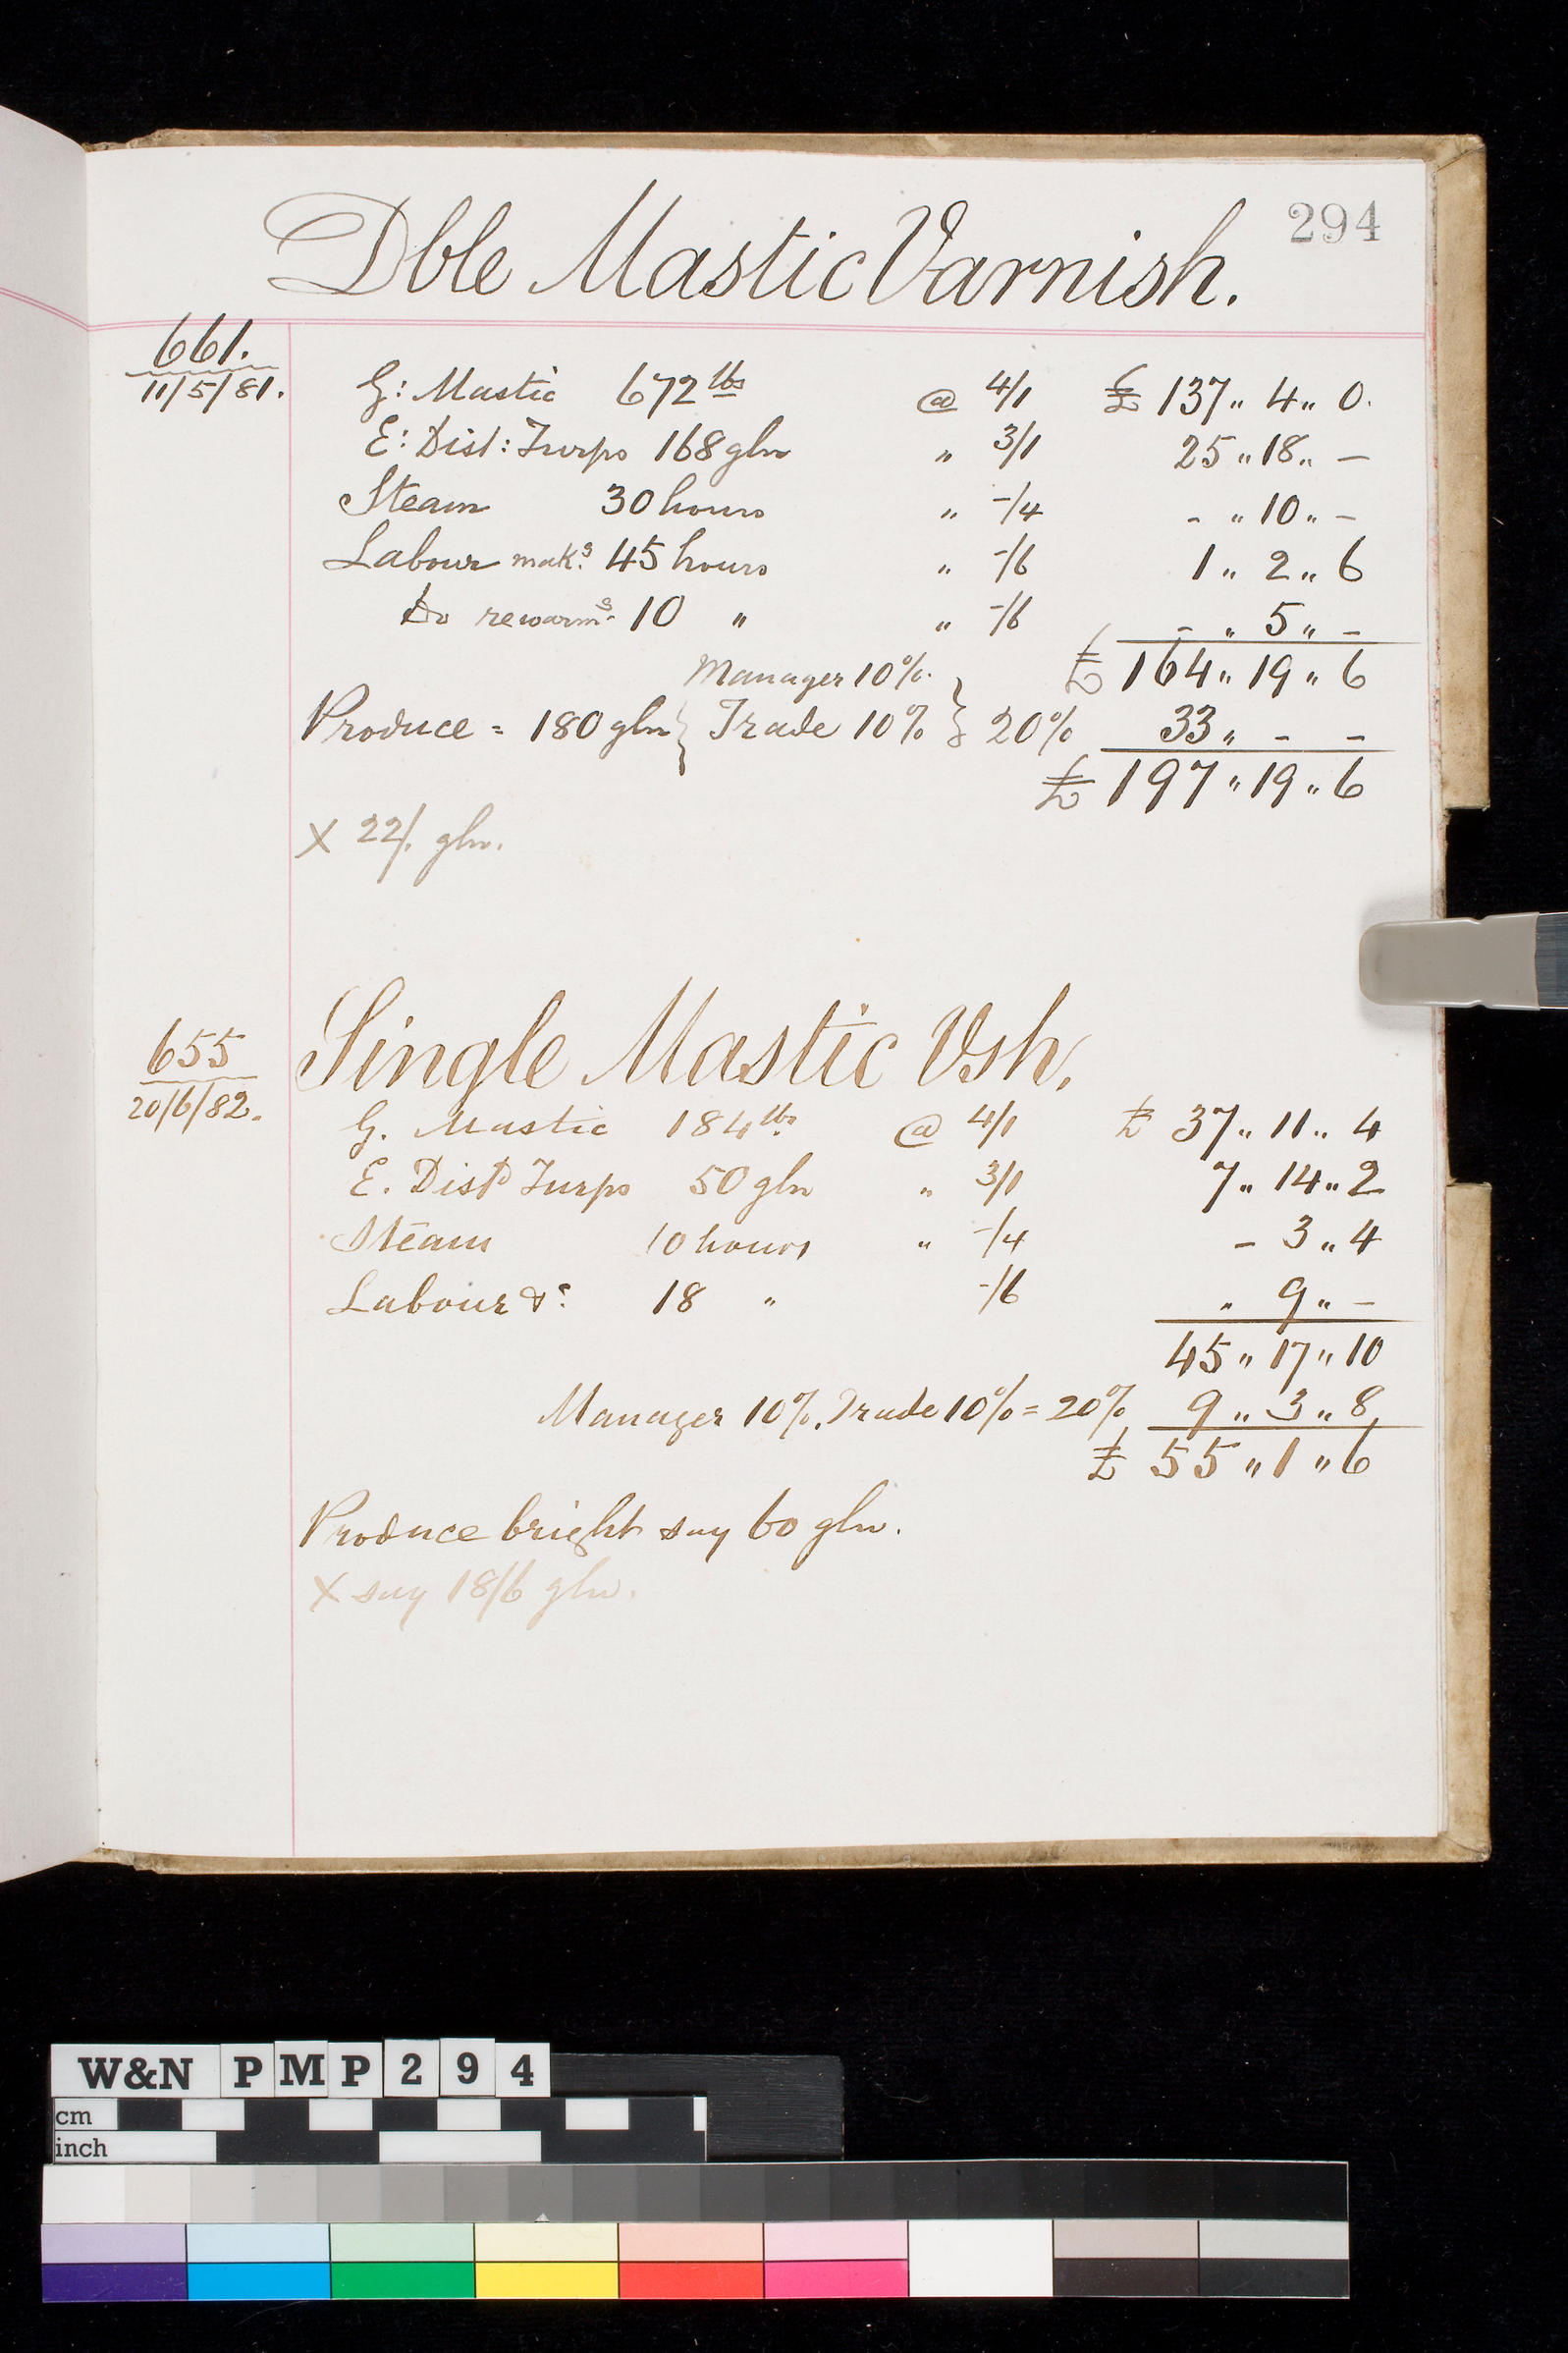 294
Dble Mastic Varnish.
661.
11/5/81.
G: Mastic 672 lbs @ 4/1 £ 137 " 4 " 0.
E: Dist: Turps 168 gln " 3/1 25 " 18 " –
Steam 30 hours " -/4 - " 10 " –
Labour mak.g 45 hours " -/6 1 " 2 " 6
Do rewarm.g 10 " " -/6 – " 5 " –
£ 164 " 19 " 6
Manager 10%.
Produce = 180 gln { Trade 10% } 20% 33 " – –
£ 197 " 19 " 6
X 22/. gln.
655
20/6/82.
Single Mastic Vsh.
G. Mastic 184 lbs. @ 4/1 £ 37 " 11 " 4
E. Dist.d Turps 50 gln " 3/1 7 " 14 " 2
Steam 10 hours " -/4 – 3 " 4
Labour &c: 18 " -/6 " 9 " –
45 " 17 " 10
Manager 10%. Trade 10% = 20% 9 " 3 " 8
£ 55 " 1 " 6
Produce bright say 60 gln.
X say 18/6 gln.
W&N PMP294
cm
inch